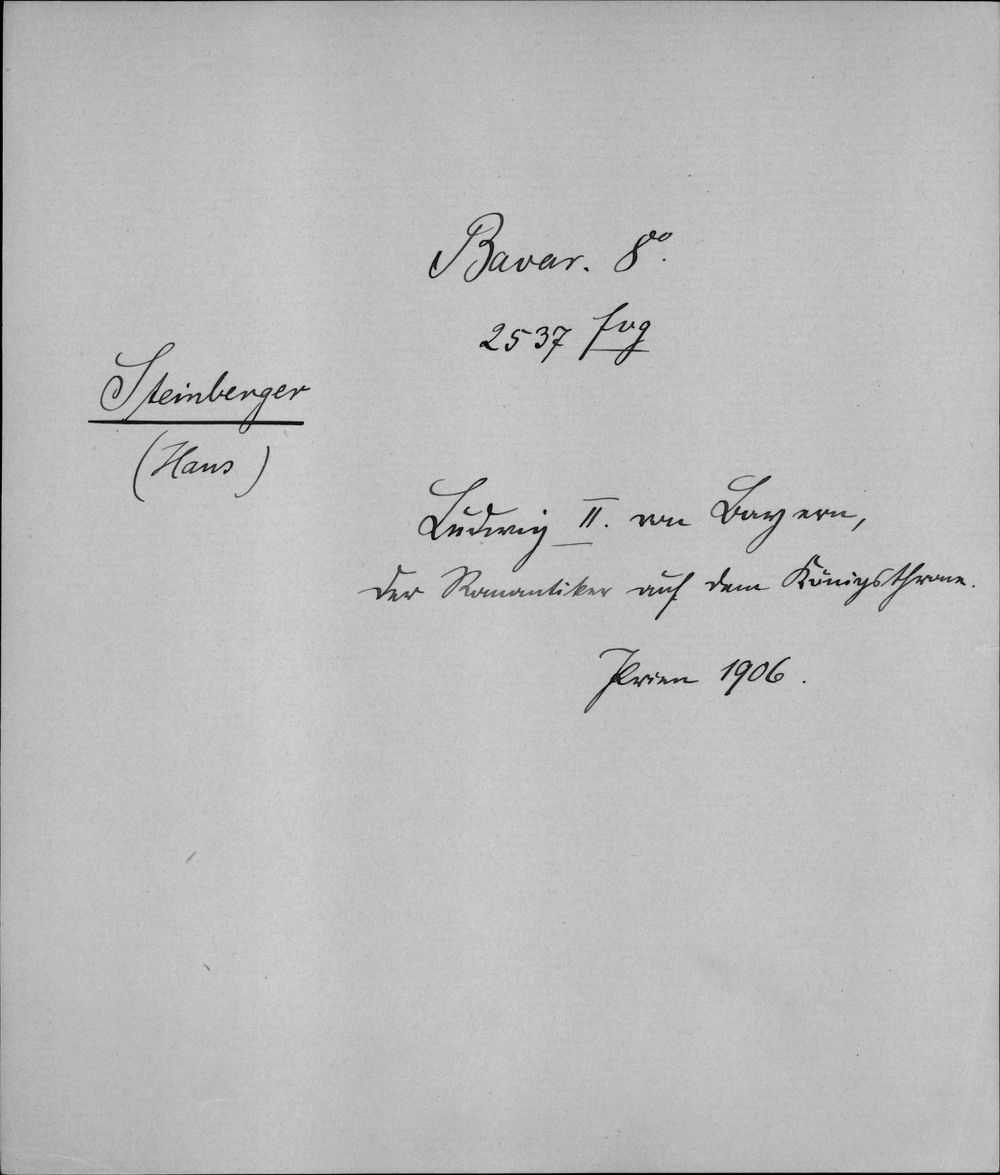 Bavar. 8º.
2537 fvg
Steinberger
(Hans)
Ludwig II. von Bayern,
der Romantiker auf dem Königsthrone.
Prien 1906.